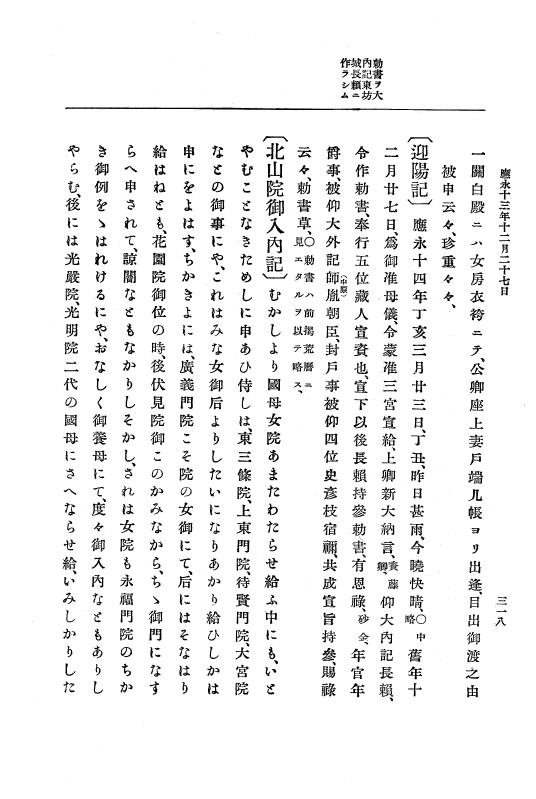 應永十三年十二月二十七日
三一八
勅書ヲ大
內記東坊
城長賴ニ
作ラシム
一關白殿ニハ女房衣袴ニテ、公卿座上妻戶端几帳ヨリ出逢、目出御渡之由
被申云々、珍重々々、
〔迎陽記〕應永十四年丁亥三月廿三日、丁丑、昨日甚雨、今曉快晴、○中略舊年十
二月廿七日、爲御准母儀、令蒙准三宮宣給、上卿新大納言、資藤卿、仰大內記長賴、
令作勅書、奉行五位藏人宣資也、宣下以後長賴持參勅書、有恩祿、砂金、年官年
爵事、被仰大外記師胤朝臣、(中原)封戶事被仰四位史彥枝宿禰、共成宣旨持參、賜祿
云々、勅書草、○勅書ハ前揭荒曆ニ見エタルヲ以テ略ス、
〔北山院御入內記〕むかしより國母女院あまたわたらせ給ふ中にも、いと
やむことなきためしに申あひ侍しは、東三條院、上東門院、待賢門院、大宮院
なとの御事にや、これはみな女御后よりしたいになりあかり給ひしかは
申にをよはす、ちかきよには、廣義門院こそ院の女御にて、后にはそなはり
給はねとも、花園院御位の時、後伏見院御このかみなから、ちゝ御門になす
らへ申されて、諒闇なともなかりしそかし、されは女院も永福門院のちか
き御例をゝはれけるにや、おなしく御養母にて、度々御入內なともありし
やらむ、後には光嚴院、光明院二代の國母にさへならせ給、いみしかりした